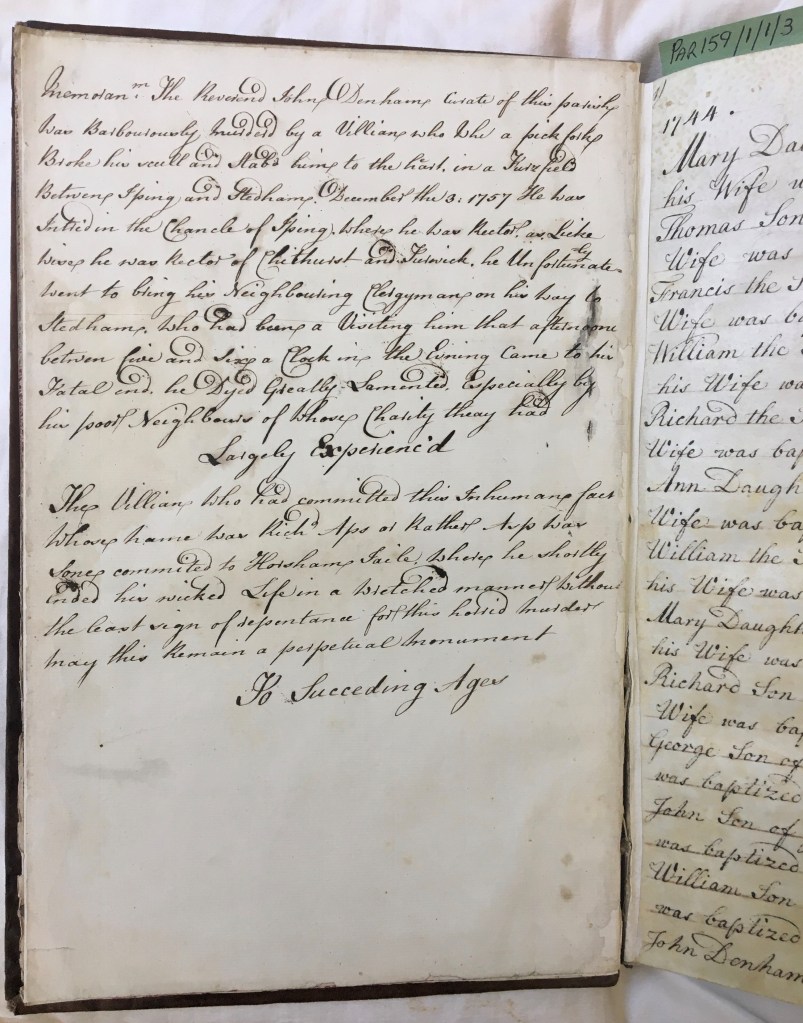 Memoran.m The Reverend John Denham Curate of this parish
Was Barbourously Murderd by a Villian who Whe a pick fork
Broke his scull and Stab'd him to the hart. in a Furzfield
Betwen Iping and Stedham. December the 3: 1757 He was
Intried in the Chancle of Iping. Where he was Rector. as Licke
wise he was Rector of Chithurst and Turwick. he Unfortunate
ly
went to bring his Neighbouring Clergyman on his way to
Stedham. Who had been a Visiting him that afternoone
betwen five and Six a Clock in the Evening Came to his
Fatal end. he Dyed Greatly Lamented. Especially by
his poor Neighbours of Whose Charity theay had
Largely Experienc'd
The Villian Who had committed this Inhuman fact
Whose name was Richd Aps or Rather Asp was
Sone commited to Horsham Jaile. Where he shortly
Ended his wicked Life in a Wretched manner Without
the least sign of repentance for this horrid Murder
may this Remain a perpetual Monument
To Succeding Ages
PAR159/1/1/3
1744.
Mary Dau
his Wife w
Thomas Son
Wife was
Francis the S
Wife was ba
William the
his Wife wa
Richard the S
Wife was bap
Ann Daugh
Wife was bap
William the S
his Wife was
Mary Daught
his Wife was
Richard Son
Wife was bap
George Son of
was baptized
John Son of
was baptized
William Son
was baptized
John Denham